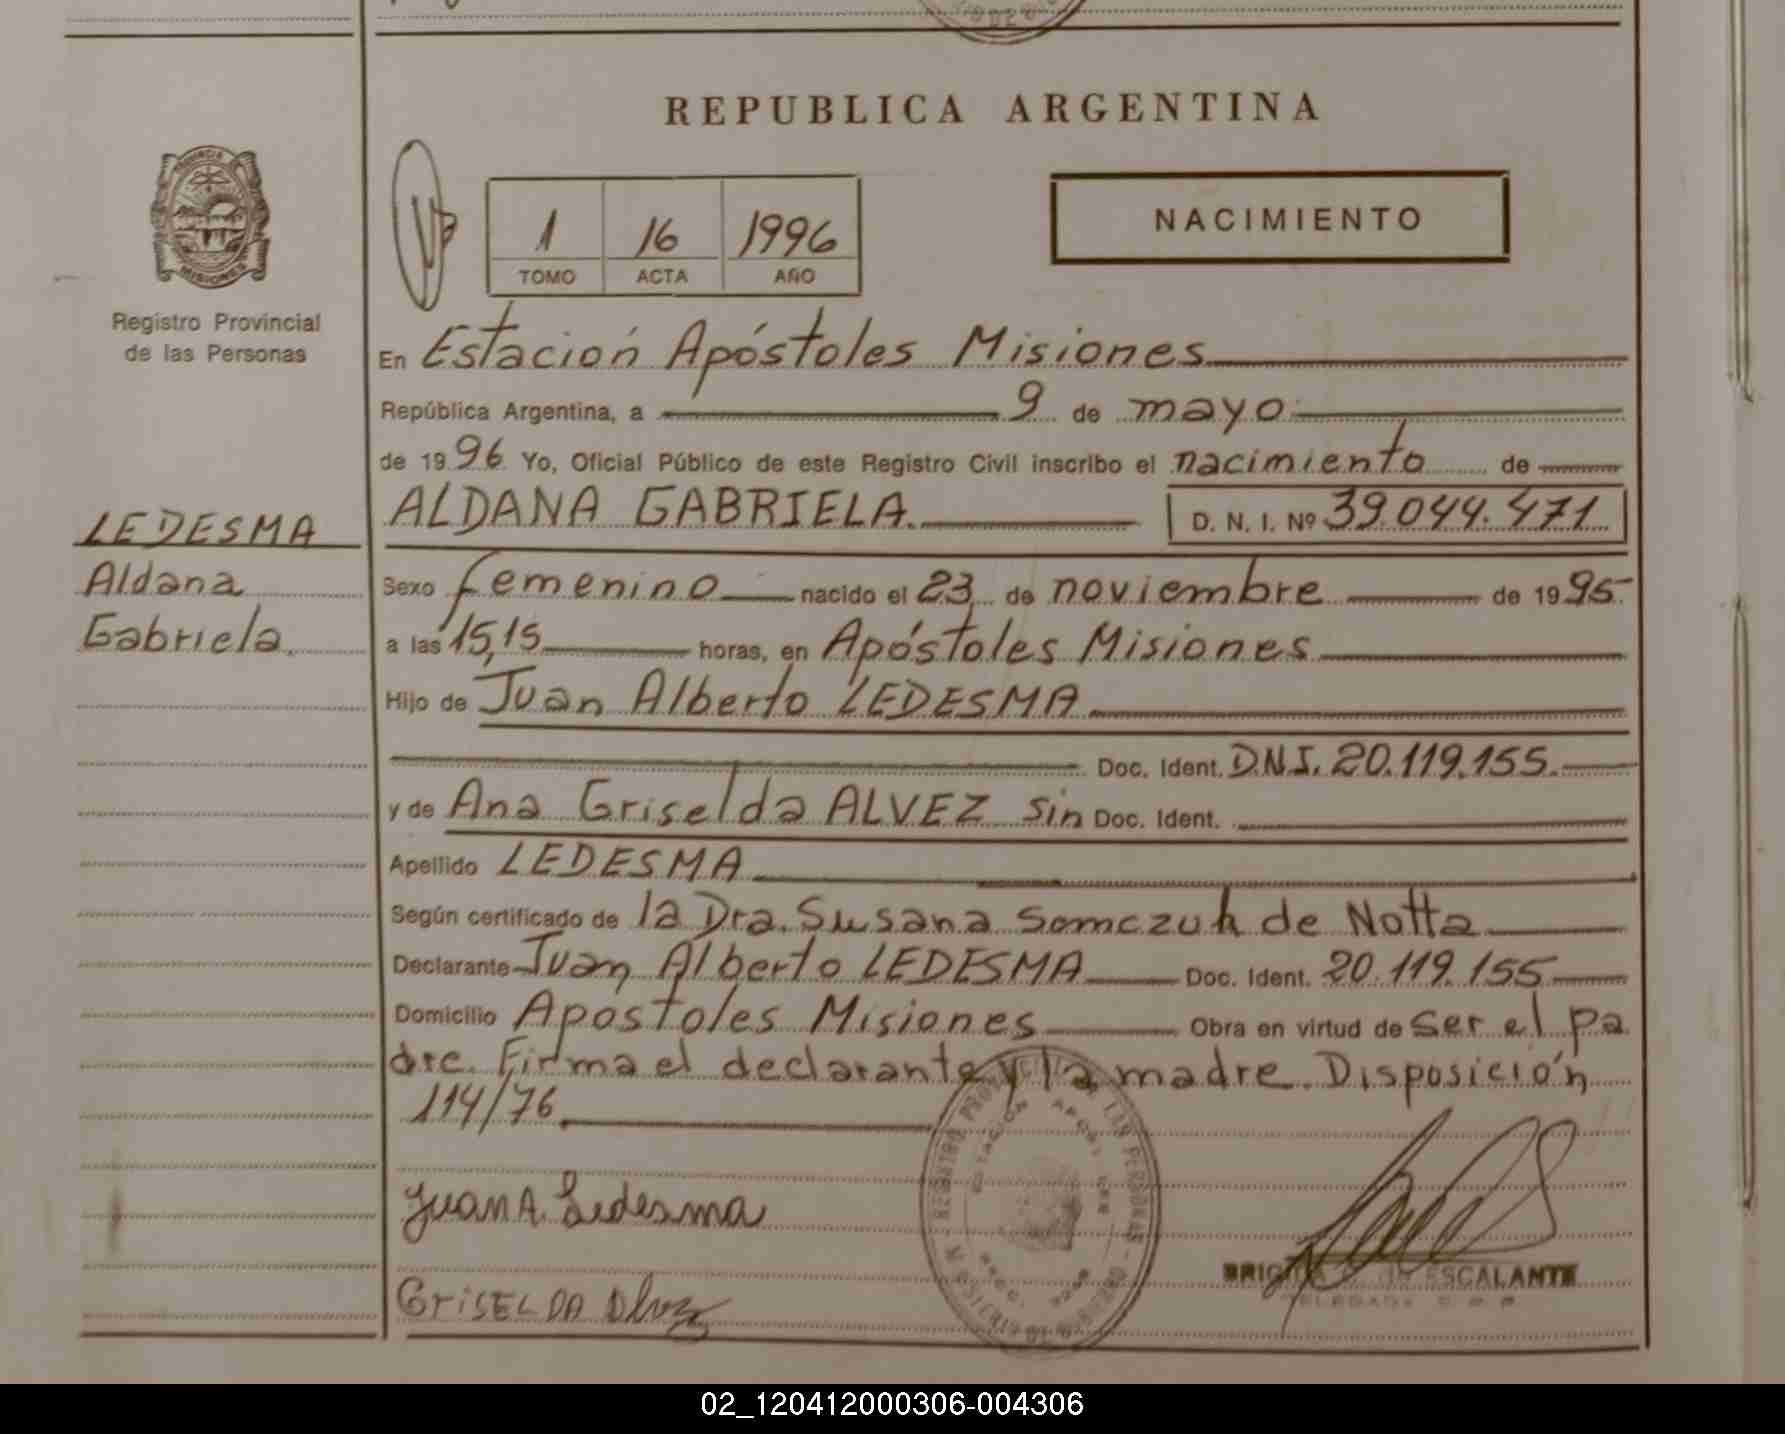 REPUBLICA ARGENTINA
PROVINCIA
MISIONES
Registro Provincial
de las Personas
1 16 1996
TOMO ACTA AÑO
NACIMIENTO
En Estación Apóstoles Misiones
República Argentina, a 9 de mayo
de 1996 Yo, Oficial Público de este Registro Civil inscribo el nacimiento de
ALDANA GABRIELA. D. N. I. Nº 39.044.471
LEDESMA
Aldana
Gabriela.
Sexo femenino nacido el 23 de noviembre de 1995
a las 15,15 horas, en Apóstoles Misiones
Hijo de Juan Alberto LEDESMA
Doc. Ident. D.N.I. 20.119.155.
y de Ana Griselda ALVEZ sin Doc. Ident.
Apellido LEDESMA
Según certificado de la Dra. Susana Somczuk de Notta
Declarante Juan Alberto LEDESMA Doc. Ident. 20.119.155
Domicilio Apostoles Misiones Obra en virtud de ser el pa
dre. Firma el declarante y la madre. Disposición
114/76
Juan A. Ledesma
GRISELDA Alvez
de ESCALANTE
02_120412000306-004306